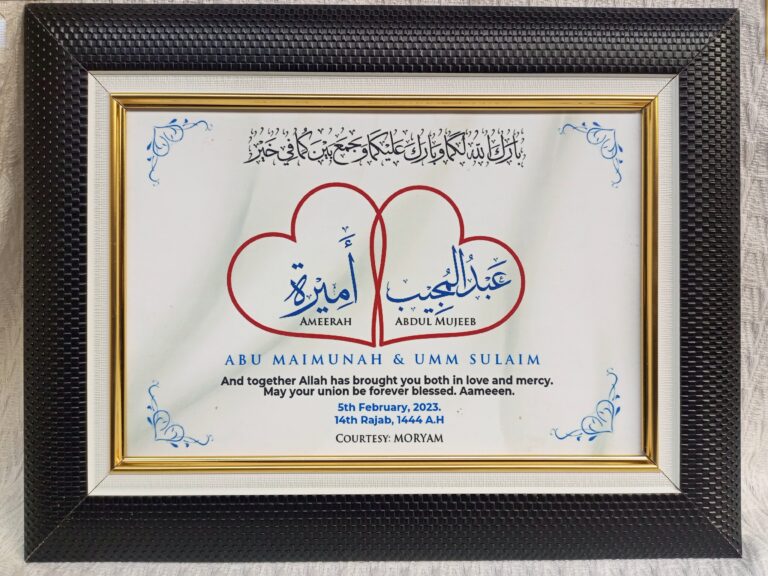 بَارَكَ اللهُ لَكُمَا وَبَارَكَ عَلَيْكُمَا وَجَمَعَ بَيْنَكُمَا فِي خَيْرٍ
أَمِيْرَة عَبْدُ الْمُجِيب
AMEERAH ABDUL MUJEEB
ABU MAIMUNAH & UMM SULAIM
And together Allah has brought you both in love and mercy.
May your union be forever blessed. Aameeen.
5th February, 2023.
14th Rajab, 1444 A.H
COURTESY: MORYAM